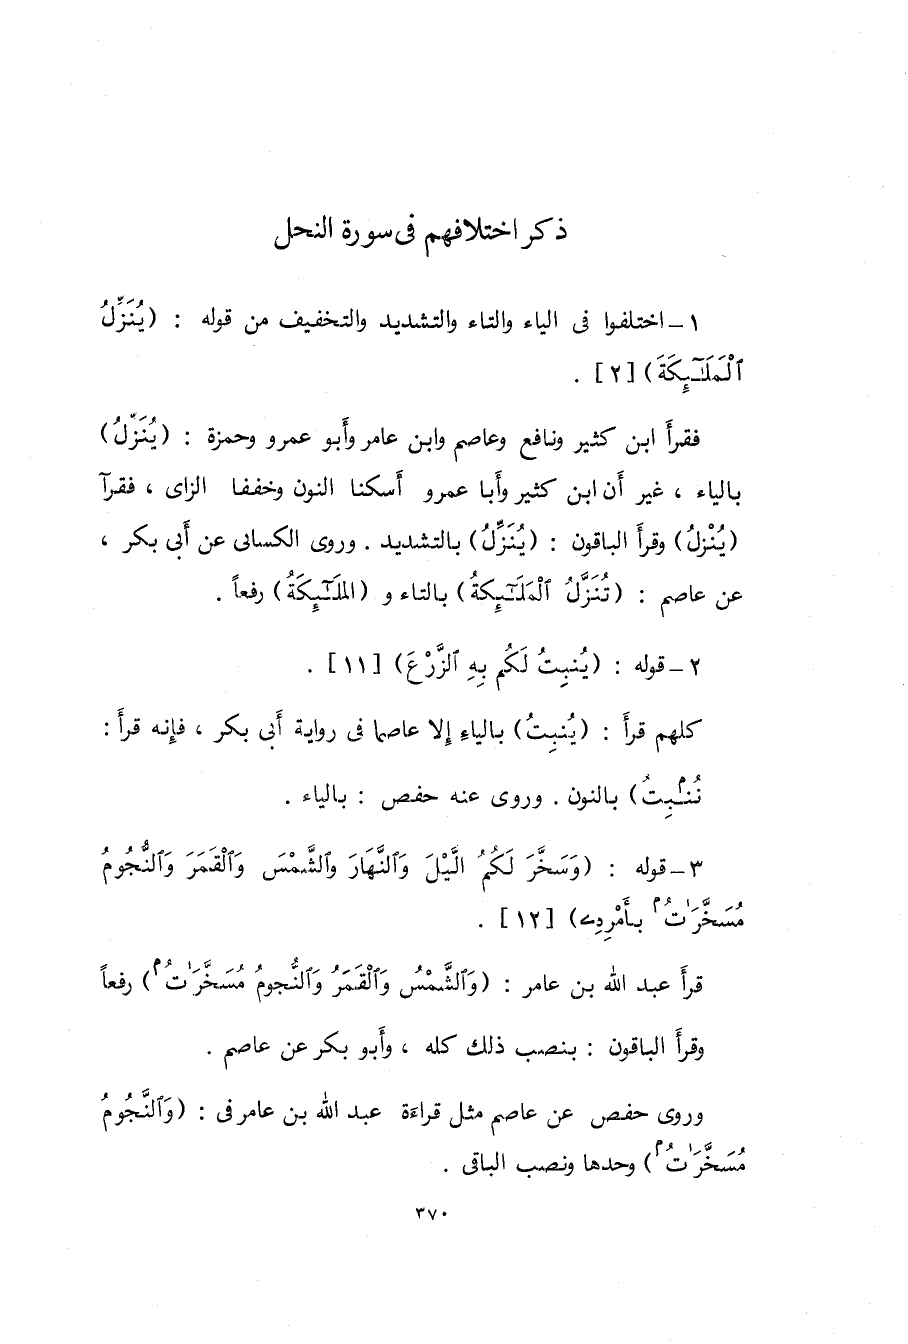 ذكر اختلافهم فى سورة النحل
١ – اختلفوا فى الياء والتاء والتشديد والتخفيف من قوله : (يُنَزِّلُ
ٱلْمَلَٰٓئِكَةَ) [٢] .
فقرأ ابن كثير ونافع وعاصم وابن عامر وأبو عمرو وحمزة : (يُنَزِّلُ)
بالياء ، غير أن ابن كثير وأبا عمرو أسكنا النون وخففا الزاى ، فقرآ
(يُنْزِلُ) وقرأ الباقون : (يُنَزِّلُ) بالتشديد . وروى الكسائى عن أبى بكر ،
عن عاصم : (تُنَزَّلُ ٱلْمَلَٰٓئِكَةُ) بالتاء و (الملَٰٓئِكَةُ) رفعاً .
٢ – قوله : (يُنۢبِتُ لَكُم بِهِ ٱلزَّرْعَ) [١١] .
كلهم قرأ : (يُنۢبِتُ) بالياء إلا عاصما فى رواية أبى بكر ، فإنه قرأ :
نُنۢبِتُ) بالنون . وروى عنه حفص : بالياء .
٣ – قوله : (وَسَخَّرَ لَكُمُ الَّيْلَ وَٱلنَّهَارَ وٱلشَّمْسَ وَٱلْقَمَرَ وَٱلنُّجُومُ
مُسَخَّرَٰتُۢ بِأَمْرِهِۦ) [١٢] .
قرأ عبد الله بن عامر : (وَٱلشَّمْسُ وَٱلْقَمَرُ وَٱلنُّجومُ مُسَخَّرَٰتُۢ) رفعاً
وقرأ الباقون : بنصب ذلك كله ، وأبو بكر عن عاصم .
وروى حفص عن عاصم مثل قراءة عبد الله بن عامر فى : (وَٱلنُّجُومُ
مُسَخَّرَٰتُۢ) وحدها ونصب الباقى .
٣٧٠